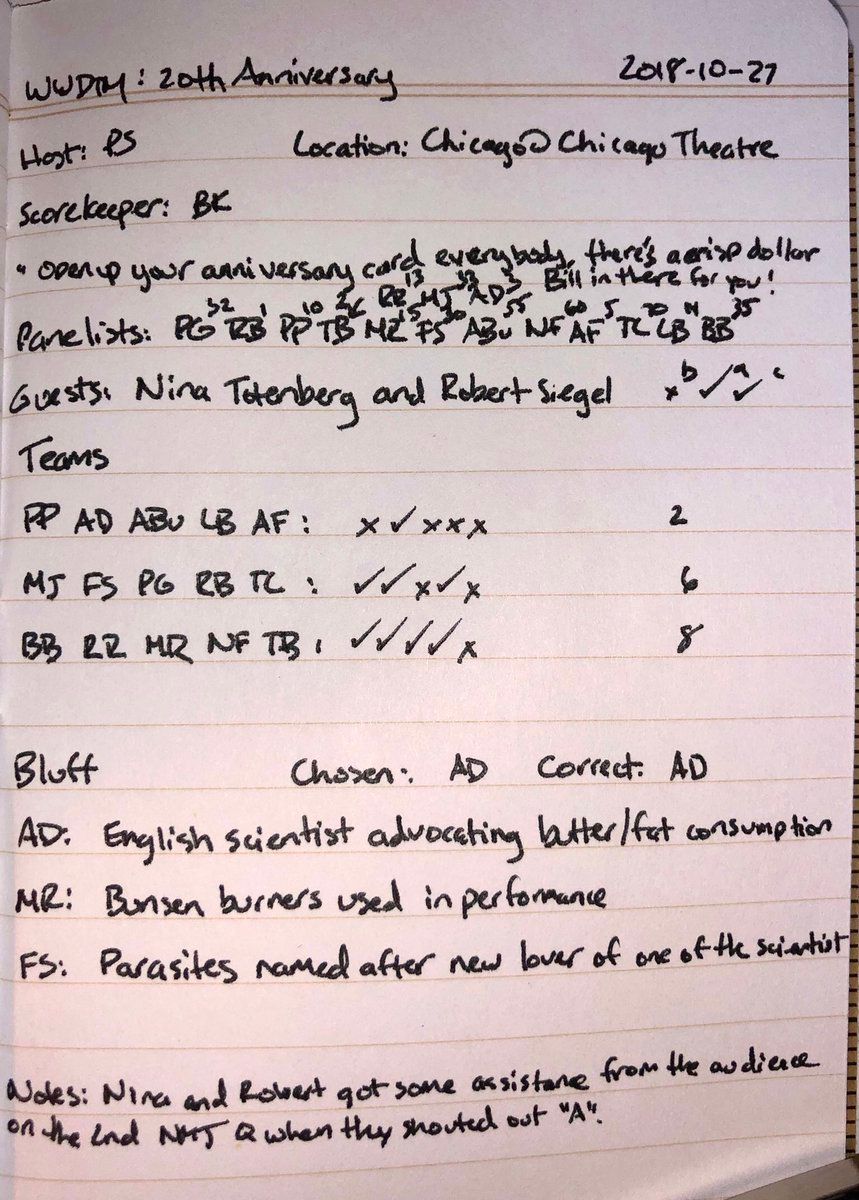 WWDTM: 20th Anniversary 2018-10-27
Host: PS Location: Chicago @ Chicago Theatre
Scorekeeper: BK
"Open up your anniversary card everybody, there's a crisp dollar
Bill in there for you!
RR 13 MJ AD
Panelists: PG 32 RB 1 PP 10 TB MR 15 FS ABu 55 NF AF 60 TC 5 LB BB 35
Guests: Nina Totenberg and Robert Siegel x b ✓ a ✓ c
Teams
PP AD ABu LB AF: x ✓ x x x 2
MJ FS PG RB TC: ✓ ✓ x ✓ x 6
BB RR MR NF TB: ✓ ✓ ✓ ✓ x 8
Bluff Chosen: AD Correct: AD
AD: English scientist advocating butter/fat consumption
MR: Bunsen burners used in performance
FS: Parasites named after new lover of one of the scientist
Notes: Nina and Robert got some assistance from the audience
on the 2nd NMJ Q when they shouted out "A".